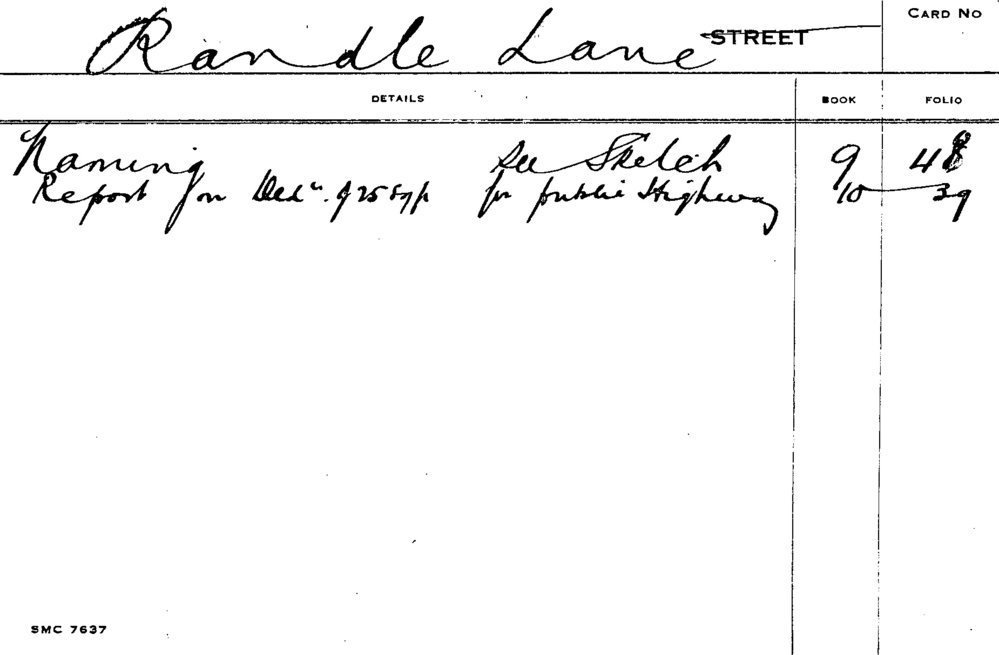 Randle Lane STREET CARD NO
DETAILS BOOK FOLIO
Naming See Sketch 9 48
Report for Dedn. of 25 ft for public Highway 10 39
SMC 7637